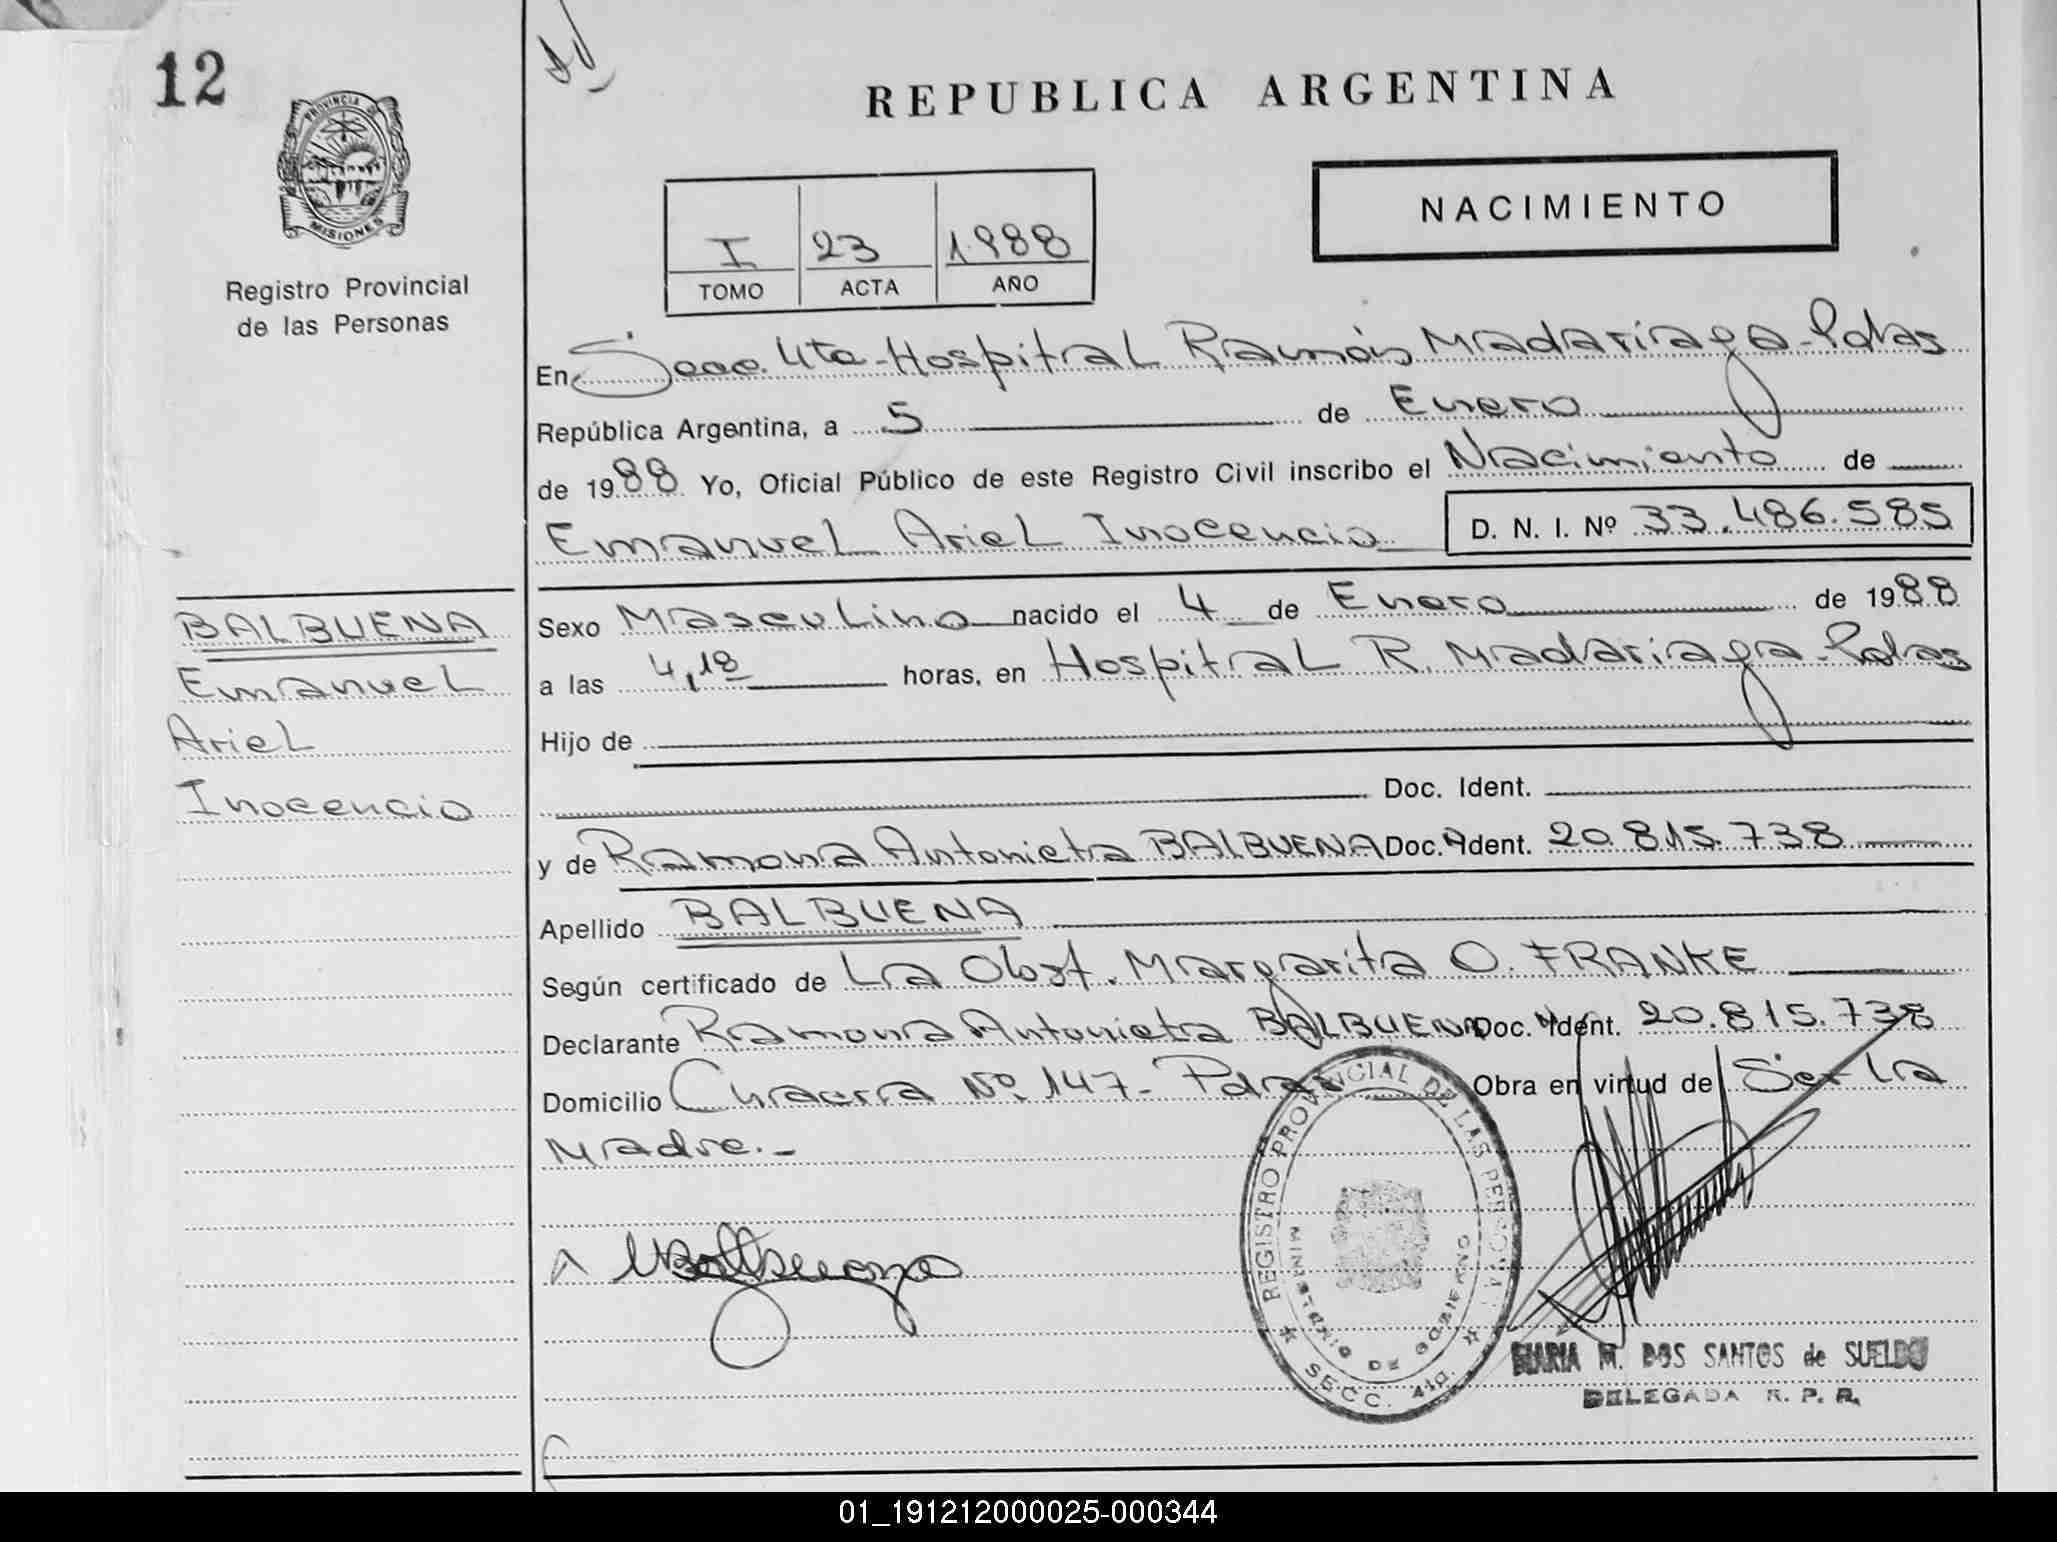 12
REPUBLICA ARGENTINA
PROVINCIA DE
MISIONES
Registro Provincial
de las Personas
NACIMIENTO
I 23 1.988
TOMO ACTA AÑO
En Secc. 4ta-Hospital Ramón Madariaga-Pdas
República Argentina, a 5 de Enero
de 1988 Yo, Oficial Público de este Registro Civil inscribo el Nacimiento de
Emanuel Ariel Inocencio D. N. I. Nº 33.486.585
BALBUENA
Emanuel
Ariel
Inocencio
Sexo Masculino nacido el 4 de Enero de 1988
a las 4,18 horas, en Hospital R. Madariaga-Pdas
Hijo de
Doc. Ident.
y de Ramona Antonieta BALBUENA Doc. Ident. 20.815.738
Apellido BALBUENA
Según certificado de La Obst. Margarita O. FRANKE
Declarante Ramona Antonieta BALBUENA Doc. Ident. 20.815.738
Domicilio Chacra Nº 147- Pdas Obra en virtud de Ser la
Madre.-
REGISTRO PROVINCIAL DE LAS PERSONAS
MINISTERIO DE GOBIERNO
SECC. 4ta
MARIA M. DOS SANTOS de SUELDO
DELEGADA R. P. P.
01_191212000025-000344